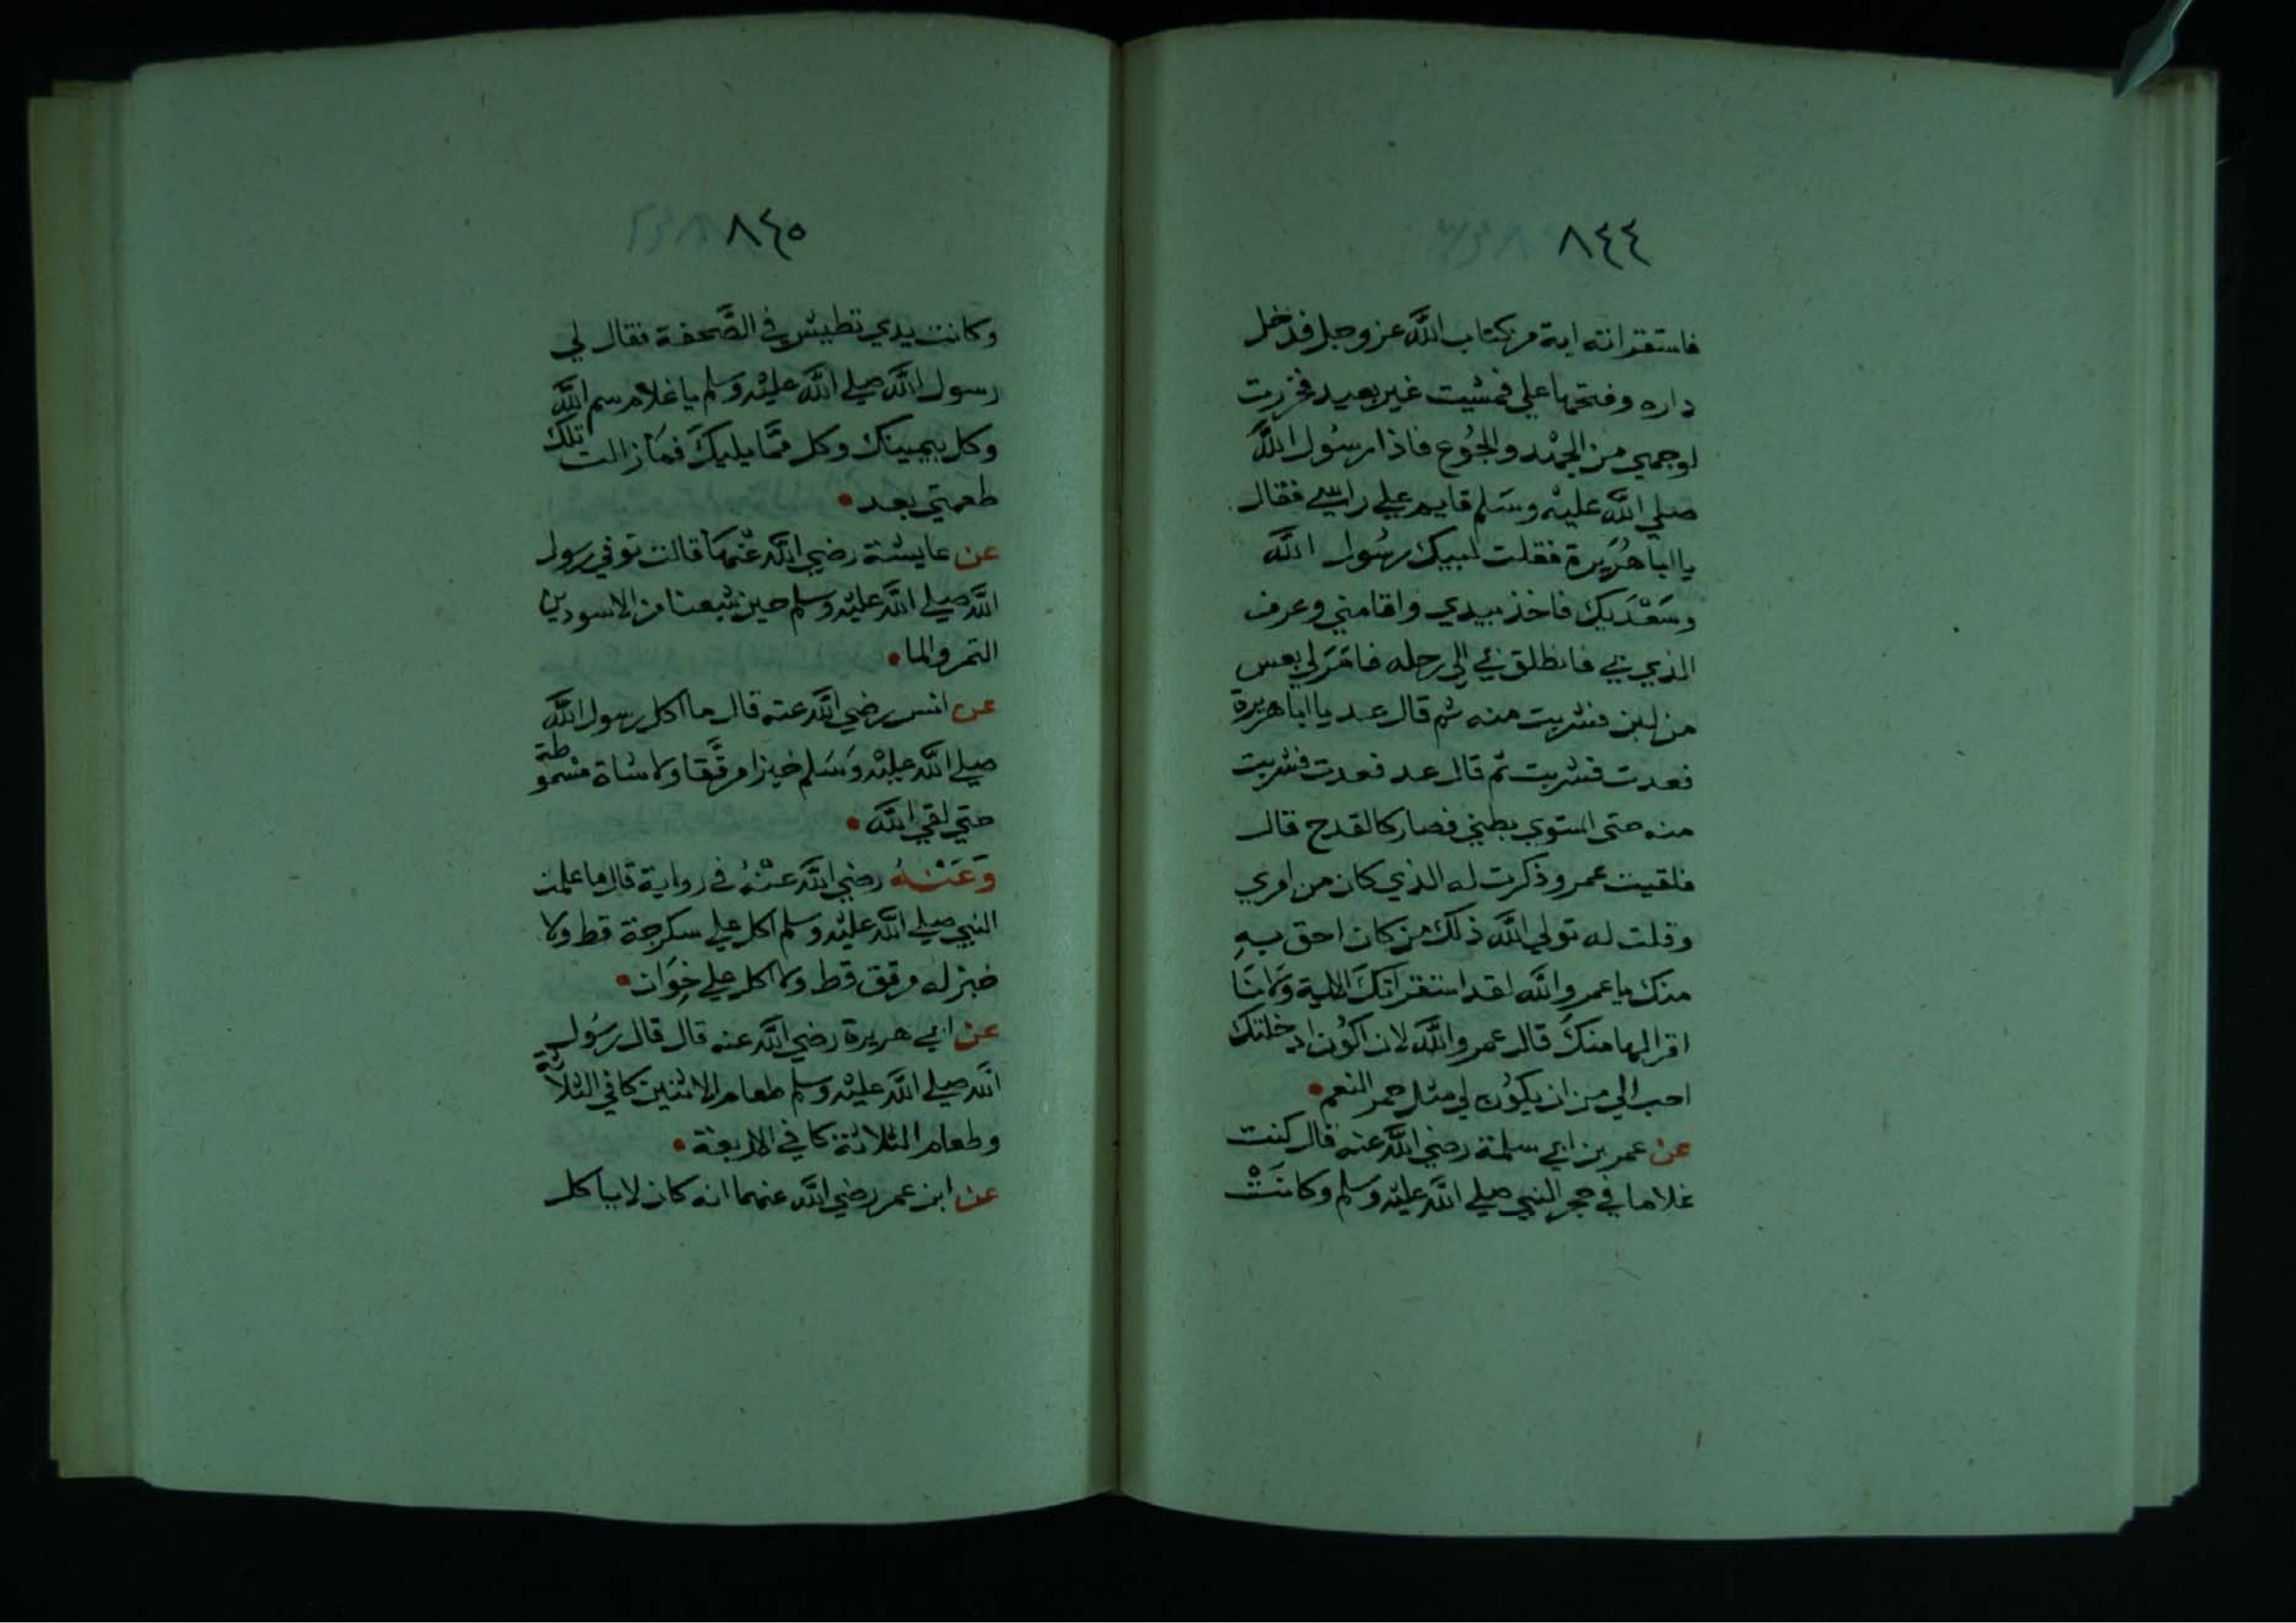 ٨٤٤
فاستقرانته اية من كتاب الله عز وجل فدخل
داره وفتحها علي فمشيت غير بعيد فخررت
لوجهي من الجهد والجوع فاذا رسول الله
صلي الله عليه وسلم قايم علي راسي فقال
يا ابا هريرة فقلت لبيك رسول الله
وسعديك فاخذ بيدي واقامني وعرف
الذي بي فانطلق بي الي رحله فامر لي بعس
من لبن فشربت منه ثم قال عد يا ابا هريرة
فعدت فشربت ثم قال عد فعدت فشربت
منه حتى استوي بطني فصار كالقدح قال
فلقيت عمر وذكرت له الذي كان من امري
وقلت له تولي الله ذلك من كان احق به
منك يا عمر والله لقد استقراتك الاية ولانا
اقرا لها منك قال عمر والله لان اكون ادخلتك
احب الي من ان يكون لي مثل حمر النعم
عن عمر بن ابي سلمة رضي الله عنه قال كنت
غلاما في حجر النبي صلي الله عليه وسلم وكانت
٨٤٥
وكانت يدي تطيش في الصَّحفة فقال لي
رسول الله صلي الله عليه وسلم يا غلام سم الله
وكل بيمينك وكل ممَّا يليكَ فما زالت تلك
طعمتي بعد
عن عايشة رضي الله عنها قالت توفي رسول
الله صلي الله عليه وسلم حين شبعنا من الاسودين
التمر والما
عن انس رضي الله عنه قال ما اكل رسول الله
صلي الله عليه وسلم خبزا مرقَّقا ولا شاة مسموطة
حتي لقي الله
وَعَنْهُ رضي الله عنه في رواية قال ما علمت
النبي صلي الله عليه وسلم اكل علي سكرجة قط ولا
خبز له مرقق قط ولا اكل علي خِوَان
عن ابي هريرة رضي الله عنه قال قال رسول
الله صلي الله عليه وسلم طعام الاثنين كافي الثلاثة
وطعام الثلاثة كافي الاربعة
عن ابن عمر رضي الله عنهما انه كان لا ياكل